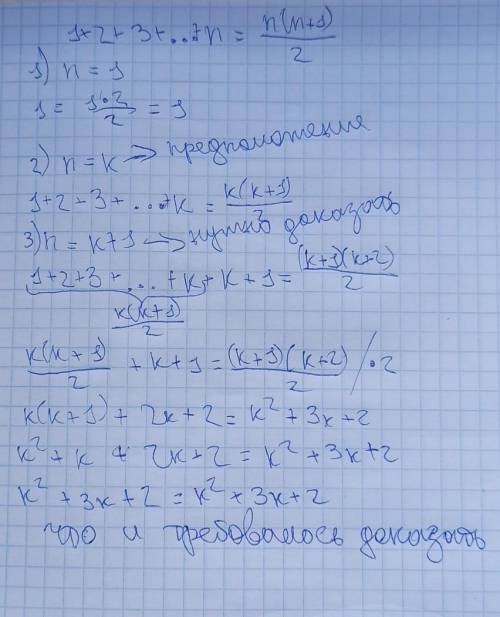 1+2+3+...+n = n(n+1)/2
1) n = 1
1 = 1·2/2 = 1
2) n = k → предположение
1+2+3+...+k = k(k+1)/2
3) n = k+1 → нужно доказать
1+2+3+...+k+k+1 = (k+1)(k+2)/2
k(k+1)/2
k(k+1)/2 + k+1 = (k+1)(k+2)/2 /·2
k(k+1) + 2k+2 = k²+3k+2
k²+k + 2k+2 = k²+3k+2
k²+3k+2 = k²+3k+2
что и требовалось доказать